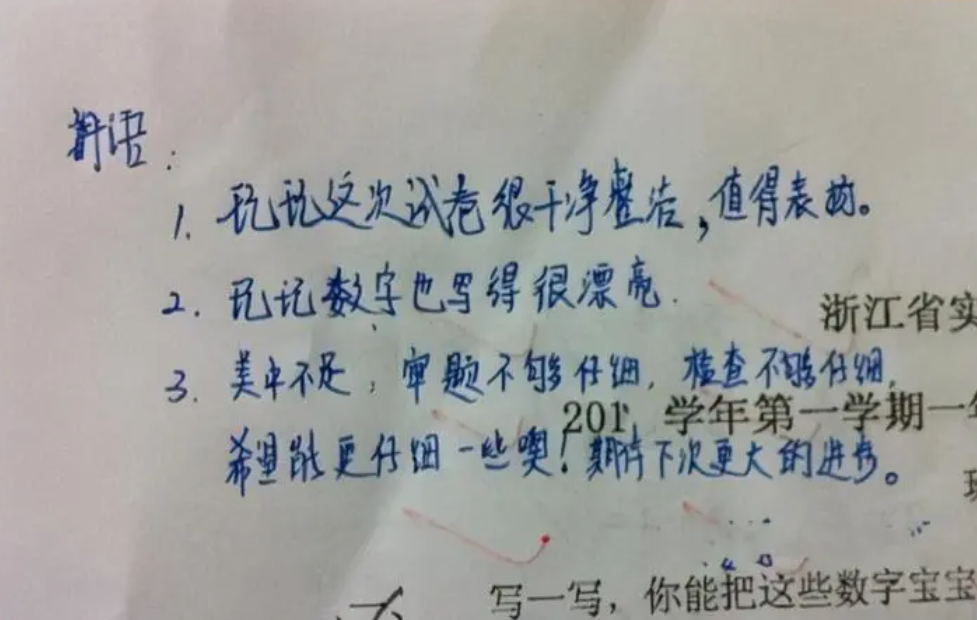 评语：
1. 玩玩这次试卷很干净整洁，值得表扬。
2. 玩玩数字也写得很漂亮.
浙江省实
3. 美中不足，审题不够仔细，检查不够仔细，
201 学年第一学期一
希望能更仔细一些噢！期待下次更大的进步。
写一写，你能把这些数字宝宝